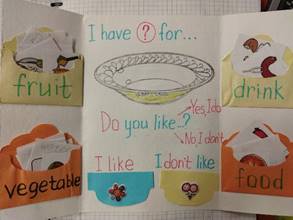 I have ? for...
fruit
drink
Do you like...?
Yes, I do
No, I don't
I like
I don't like
vegetable
food